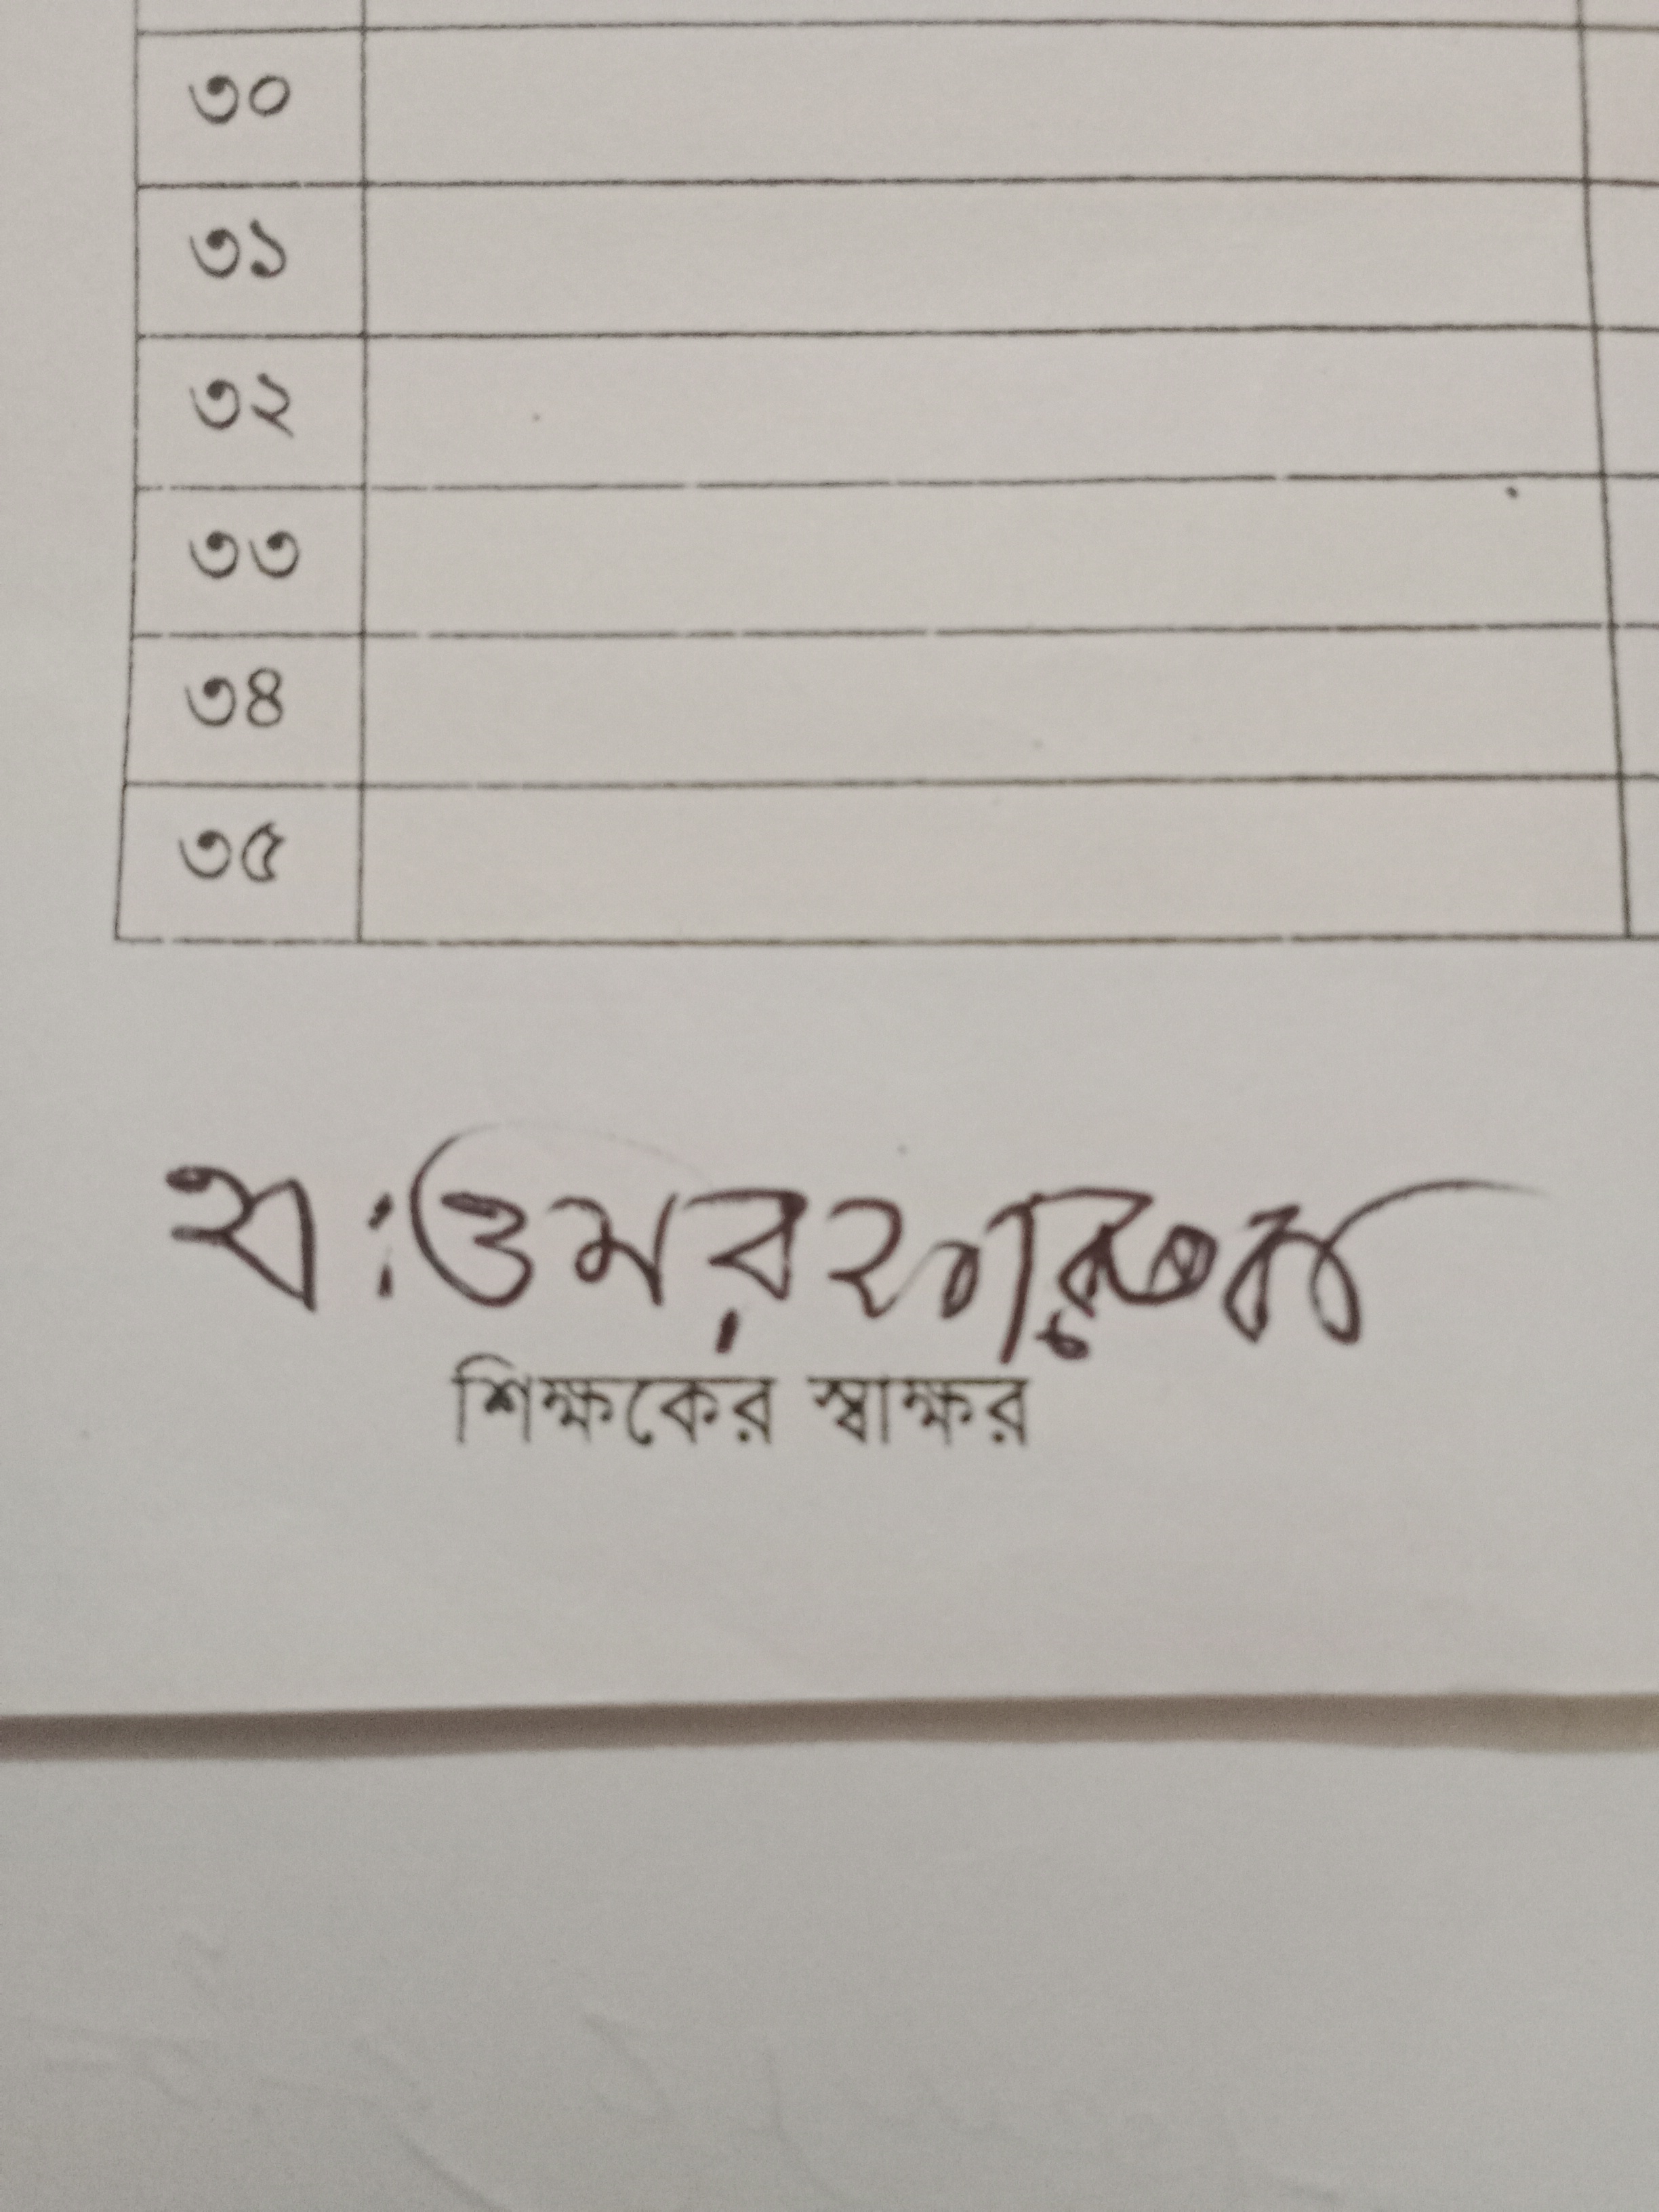 ৩০
৩১
৩২
৩৩
৩৪
৩৫
ওমর ফারুক
শিক্ষকের স্বাক্ষর